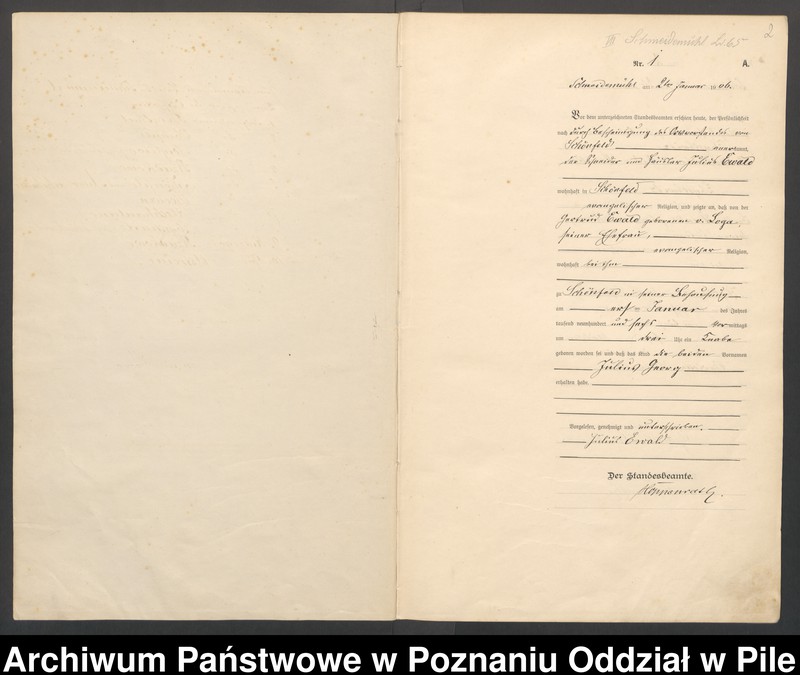 2
VII Schneidemühl
Nr. 1
A.
Schneidemühl am 2ten Januar 1906.
Vor dem unterzeichneten Standesbeamten erschien heute, der Persönlichkeit
nach durch Bescheinigung des Ortsvorstandes von
Schönfeld anerkannt,
der Schneider und Häusler Julius Ewald
wohnhaft in Schönfeld
evangelischer Religion, und zeigte an, daß von der
Gertrud Ewald geborenen v. Loga,
seiner Ehefrau,
evangelischer Religion,
wohnhaft bei ihm
zu Schönfeld in seiner Behausung
am ersten Januar des Jahres
tausend neunhundert und sechs Vormittags
um drei Uhr ein Knabe
geboren worden sei und daß das Kind die beiden Vornamen
Julius Georg
erhalten habe
Vorgelesen, genehmigt und unterschrieben.
Julius Ewald
Der Standesbeamte.
Archiwum Państwowe w Poznaniu Oddział w Pile